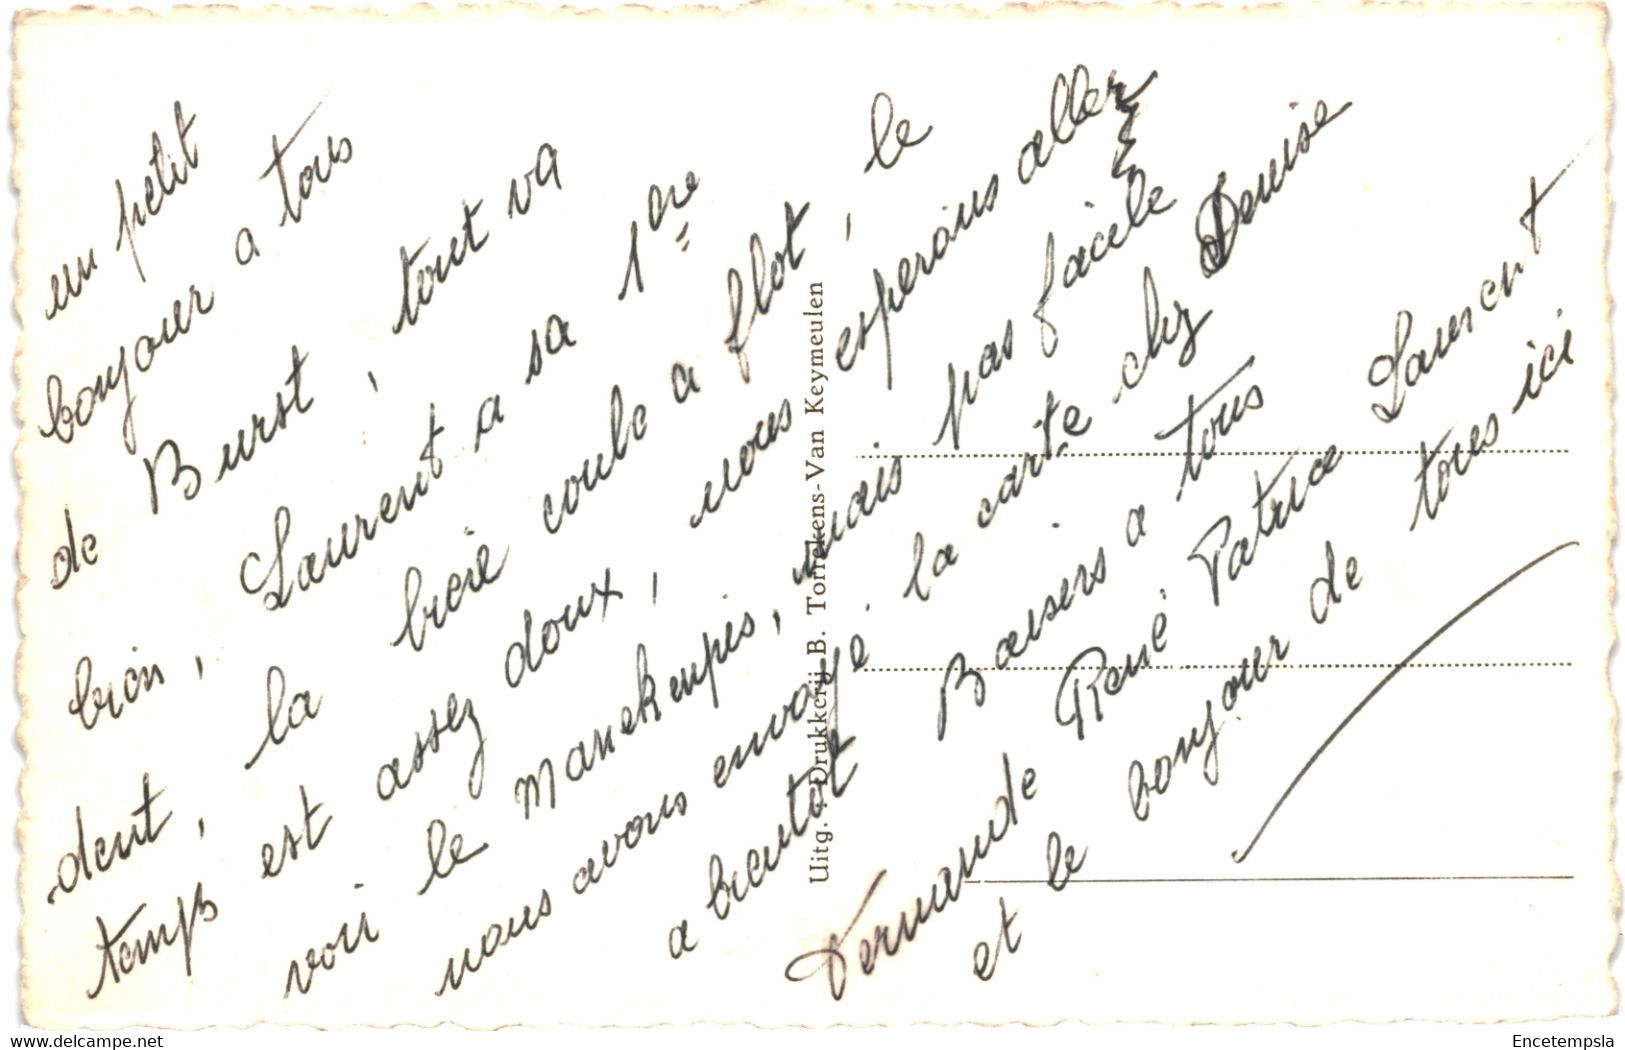 un petit
bonjour a tous
de Burst, tout va
bien, Laurent a sa 1re
dent, la biere coule a flot, le
temps est assez doux, nous esperions aller
voir le Manekenpis, mais pas facile
nous avons envoyé la carte chez Denise
a bientot Baisers a tous
Fernande René Patrice Laurent
et le bonjour de tous ici
Uitg. : Drukkerij B. Torrekens-Van Keymeulen
www.delcampe.net
Encetempsla